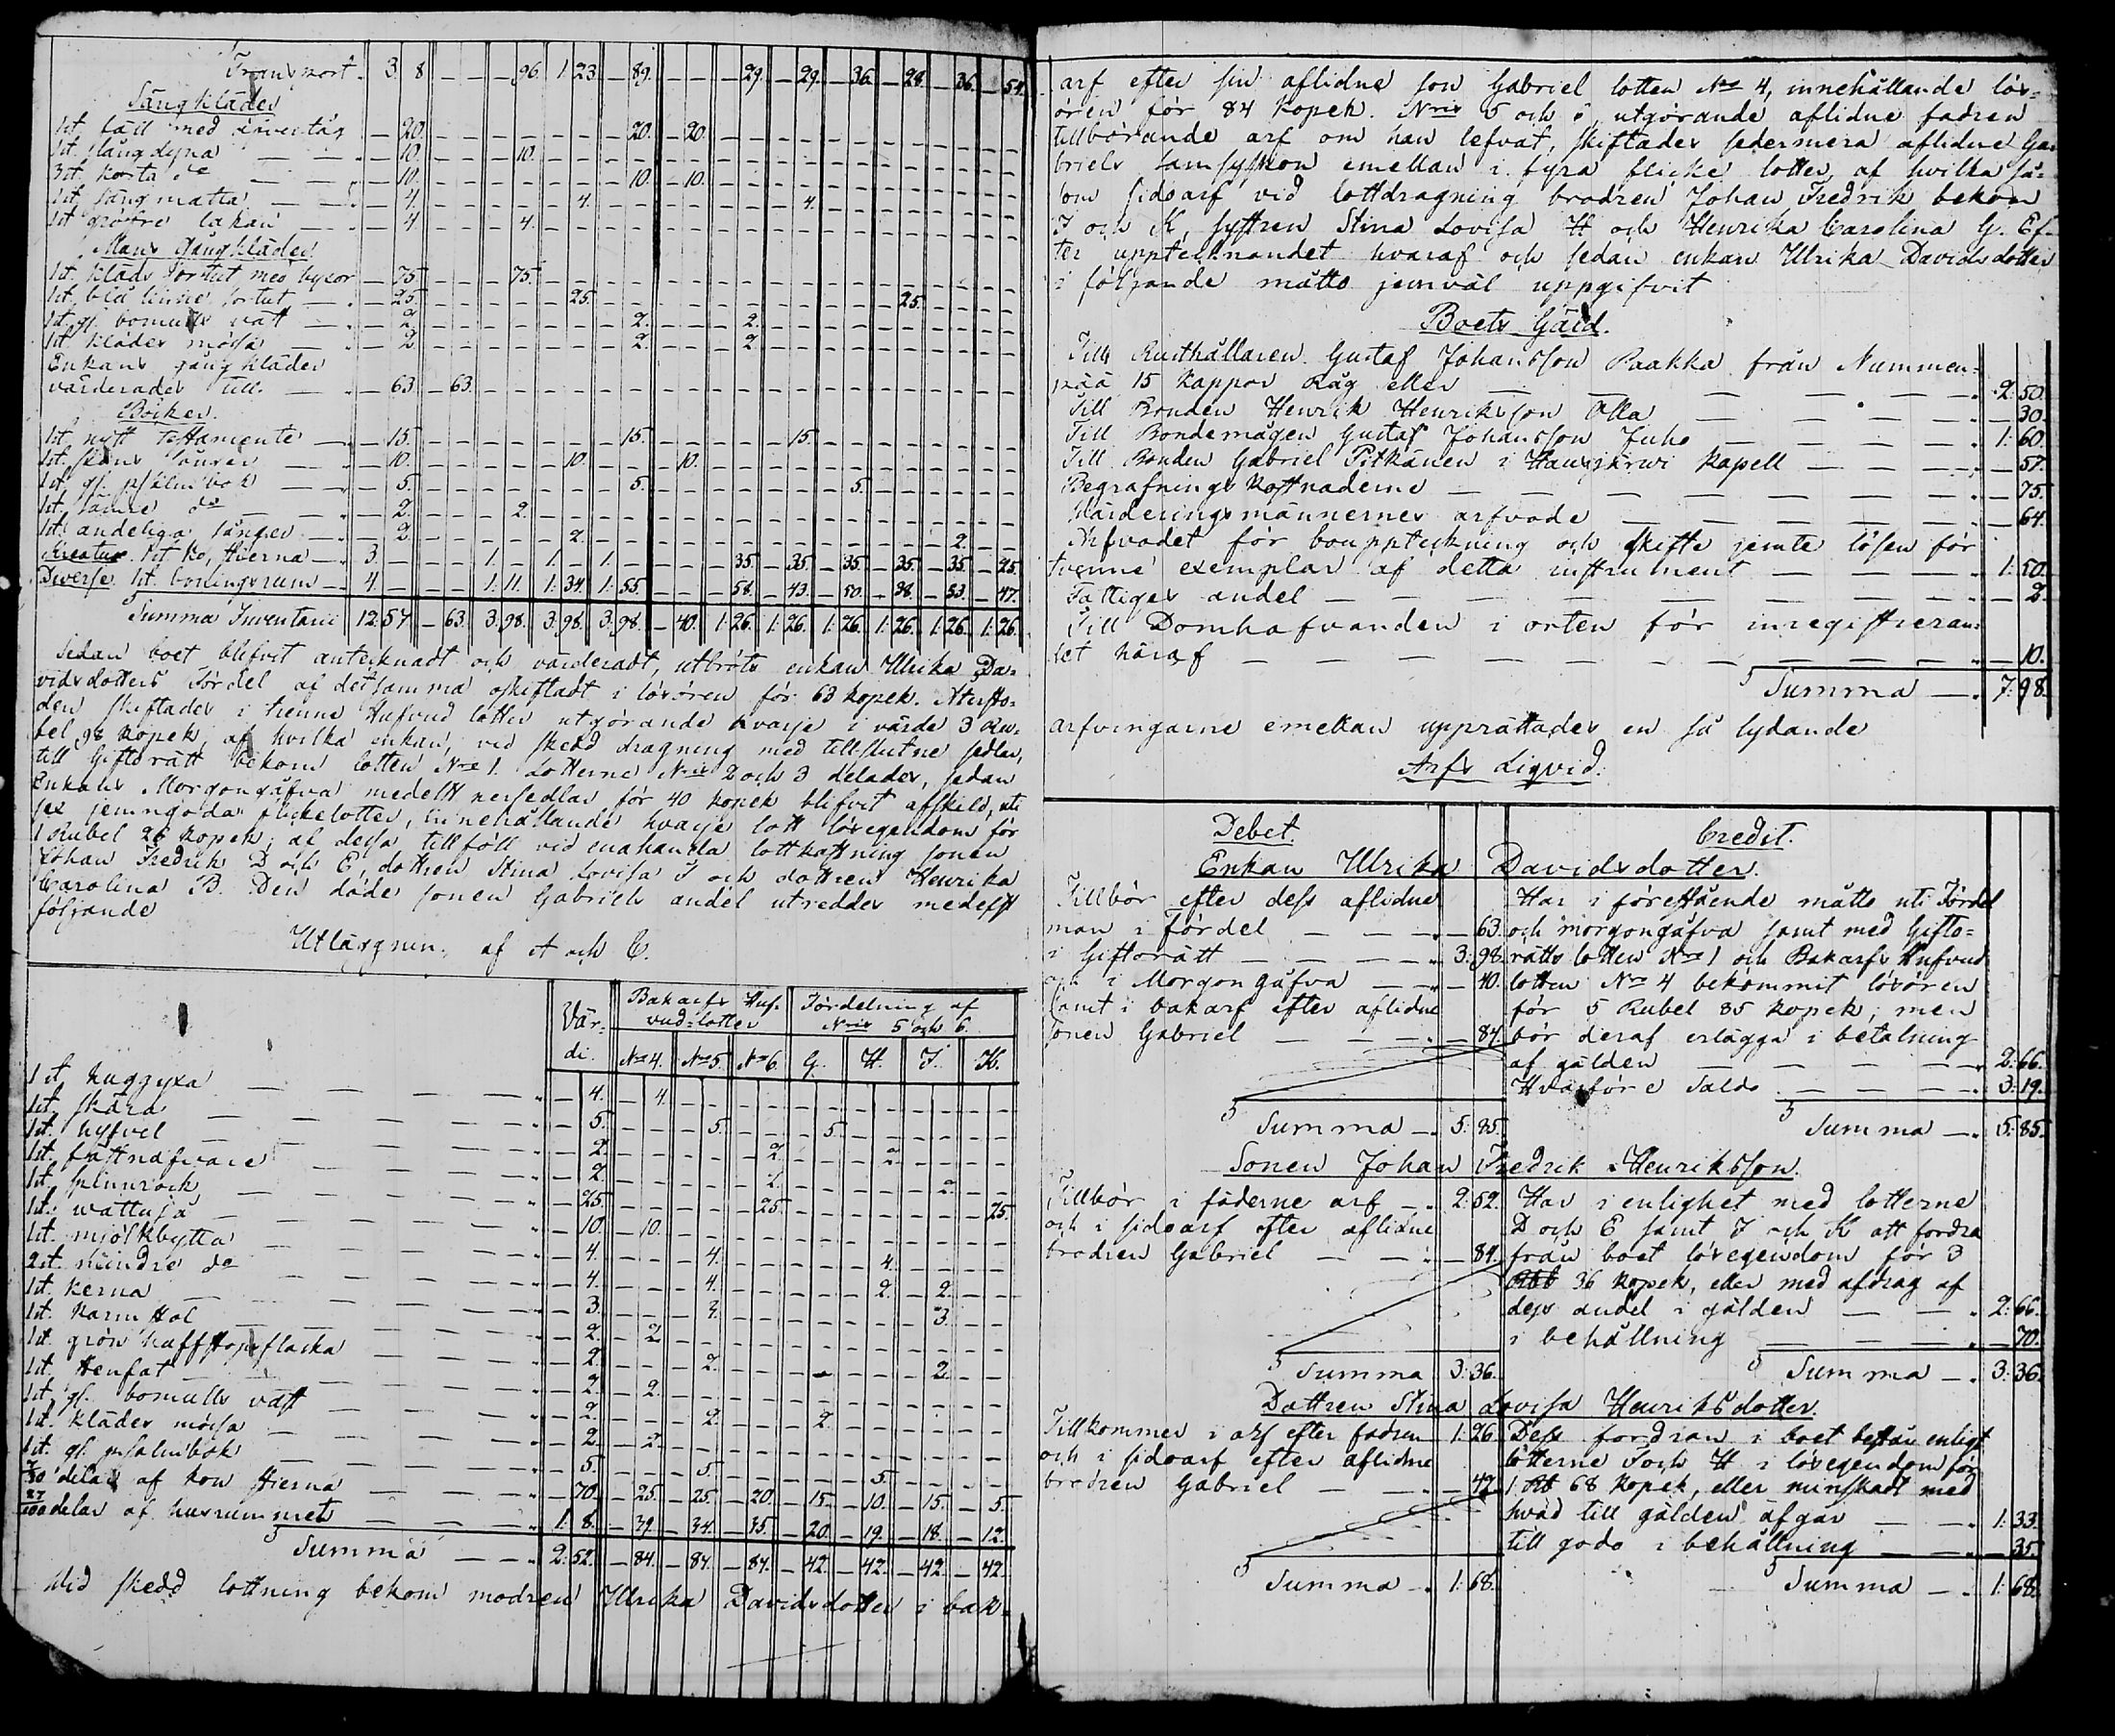 Transport 3 8 — — — 96. 1 23 — 89. — — — 29. — 29. — 36. — 28. — 36. — 54.
Sängkläder
1 st. fäll med öfvertåg — 20. 20. 20.
1 st. långdyna — 10. 10.
3 st. korta do — 10. 10. 10.
1 st. sängmatta — 4. 4. 4.
1 st. gröfre lakan — 4. 4.
Mans Gångkläder
1 st. kläds sortut med byxor — 75. 75.
1 st. blå linne sortut — 25. 25. 25.
1 st. gl. bomulls väst — 2. 2. 2.
1 st. kläder mössa — 2 2. 2
Enkans gångkläder
värderades till — 63 — 63.
Böcker.
1 st. nytt Testamente — 15. 15. 15.
1 st. 10. 10. 10.
1 st. gl. psalmbok — 5. 5. 5.
1 st. do — 2. 2.
1 st. andeliga sånger — 2 2. 2.
Kreatur. 1 st. ko, Stierna — 3. 1. 1. 1. — 35. — 35. — 35. — 35. — 35. — 25.
Diverse 1 st. boningsrum — 4. 1. 11. 1. 34. 1. 55. — 58. — 43. — 50. — 38. — 53. — 47.
Summa Inventarii 12. 57 — 63. 3. 98. 3. 98. 3. 98. — 40. 1. 26. 1. 26. 1. 26. 1. 26. 1. 26. 1. 26.
Sedan boet blifvit antecknadt och värderadt, utbröts enkan Ulrika Da-
vidsdotters Fördel af detsamma oskiftadt i lösören för 63 kopek. Återsto-
den skiftades i trenne Hufvud lotter utgörande hvarje i värde 3 Ru-
bel 98 kopek, af hvilka enkan, vid skedd dragning med tillslutne sedlar,
till Giftorätt bekom lotten No 1. Lotterne Nris 2 och 3 delades, sedan
Enkans Morgongåfva medelst för 40 kopek blifvit afskild, uti
sex jemngoda flickelotter, innehållande hvarje lott lösegendom för
1 Rubel 26 kopek; af dessa tillföll vid enahanda lottkastning sonen
Johan Fredrik D och E, dottren Stina Lovisa F och dottren Henrika
Carolina B. Den döde sonen Gabriels andel utreddes medelst
följande
af A och C.
Vär- Bakarfs Huf- Fördelning af
vud-lotter Nris 5 och 6.
di. No 4. No 5. No 6. G. H. J. K.
1 st. huggyxa — 4. — 4.
1 st. skära — 5. 5. 5.
1 st. hyfvel — 2. 2. 2.
1 st. — 2. 2. 2.
1 st. spinnrock — 25. 25. 25.
1 st. — 10. — 10.
1 st. mjölkbytta — 4. 4. 4.
2 st. mindre do — 4. 4. 2. 2.
1 st. kerna — 3. 3. 3.
1 st. karmstol — 2. — 2
1 st. grön — 2. 2. 2.
1 st. stenfat — 2. — 2.
1 st. gl. bomulls väst — 2. 2. 2.
1 st. kläder mössa — 2. — 2.
1 st. gl. psalmbok — 5. 5. 5.
delar af kon Stierna — 70. — 25. — 25. — 20. — 15. — 10. — 15. — 5.
delar af husrummet 1. 8. — 39. — 34. — 35. — 20. — 19. — 18. — 12.
Summa — 2. 52. — 84. — 84. — 84. — 42. — 42. — 42. — 42.
Wid skedd lottning bekom modren Ulrika Davidsdotter i bak-
arf efter sin aflidne son Gabriel lotten No 4, innehållande lös-
ören för 84 kopek. Nris 5 och 6, utgörande aflidne fadren
tillhörande arf om han lefvat, skiftades sedermera aflidne Ga-
briels samsyskon emellan i fyra flicke lotter, af hvilka så-
som sidoarf vid lottdragning brodren Johan Fredrik bekom
J och K, systren Stina Lovisa H och Henrika Carolina G. Ef-
ter upptecknandet hvaraf och sedan enkan Ulrika Davidsdotter
i följande måtto jemväl uppgifvit
Boets Gäld.
Till Rusthållaren Gustaf Johansson Paakka från Nummen-
pää 15 kappor Råg eller — 2. 50.
Till Bonden Henrik Henriksson Olla — 30.
Till Bondemågen Gustaf Johansson Juho 1. 60.
Till Bonden Gabriel Pitkänen i Hausjärwi Kapell — 57.
Begrafnings kostnaderne — 75.
Värderingsmännernes arfvode — 64.
Arfvodet för bouppteckning och skifte jemte lösen för
tvenne exemplar af detta instrument — 1. 50.
Fattiges andel — 2.
Till Domhafvanden i orten för inregistreran-
det häraf — 10.
Summa — 7. 98.
arfvingarne emellan upprättades en så lydande
Arfs Liqvid.
Debet. Credit.
Enkan Ulrika Davidsdotter.
Tillbör efter dess aflidne
man i Fördel — 63.
i Giftorätt — 3. 98.
och i Morgongåfva — 40.
samt i bakarf efter aflidne
sonen Gabriel — 84.
Summa — 5. 85.
Har i förestående måtto uti Fördel
och morgongåfva samt med Gifto-
rätts lotten No 1 och Bakarfs Hufvud
lotten No 4 bekommit lösören
för 5 Rubel 85 kopek; men
bör deraf erlägga i betalning
af gälden — 2. 66.
Hvarföre Saldo — 3. 19.
Summa — 5. 85.
Sonen Johan Fredrik Henriksson.
Tillbör i fäderne arf — 2. 52.
och i sidoarf efter aflidne
brodren Gabriel — 84.
Summa 3. 36.
Har i enlighet med lotterne
D och E samt J och K att fordra
från boet lösegendom för 3
Rbl 36 kopek, eller med afdrag af
dess andel i gälden — 2. 66.
i behållning — 70.
Summa — 3. 36.
Dottren Stina Lovisa Henriksdotter.
Tillkommer i arf efter fadren 1. 26
och i sidoarf efter aflidne
brodren Gabriel — 42
Summa — 1. 68.
Dess fordran i boet består enligt
lotterne F och H i lösegendom för
1 Rbl 68 kopek, eller minskadt med
hvad till gälden afgår — 1. 33.
till godo i behållning — 35.
Summa — 1. 68.